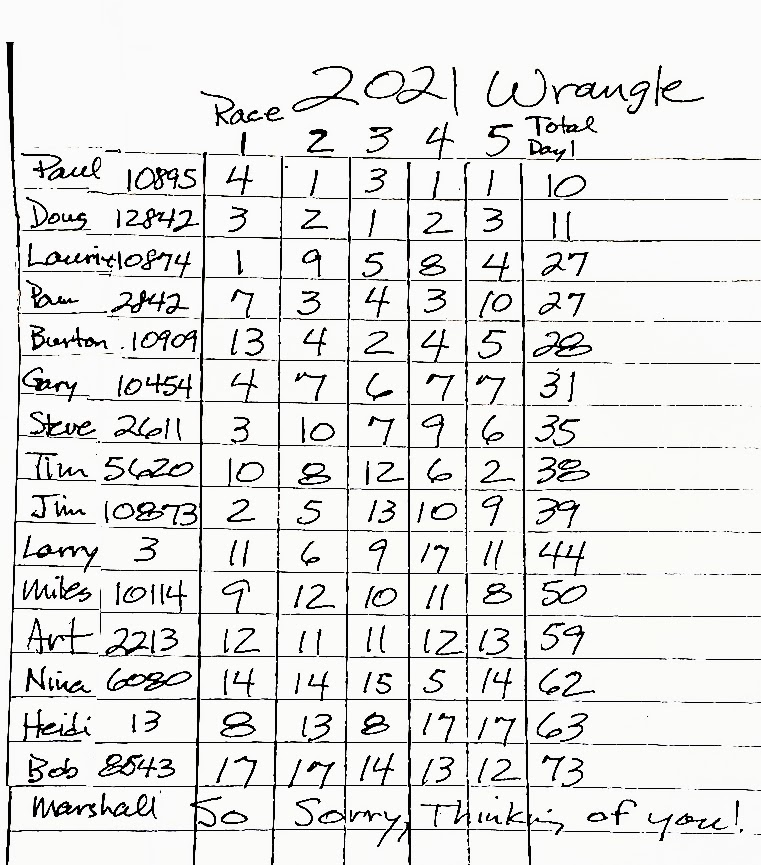 2021 Wrangle
Race
1 2 3 4 5 Total Day 1
Paul 10895 4 1 3 1 1 10
Doug 12842 3 2 1 2 3 11
10874 1 9 5 8 4 27
Pam 2842 7 3 4 3 10 27
Burton 10909 13 4 2 4 5 28
Gary 10454 4 7 6 7 7 31
Steve 2611 3 10 7 9 6 35
Tim 5620 10 8 12 6 2 38
Jim 10873 2 5 13 10 9 39
Larry 3 11 6 9 17 11 44
Miles 10114 9 12 10 11 8 50
Art 2213 12 11 11 12 13 59
Nina 6080 14 14 15 5 14 62
Heidi 13 8 13 8 17 17 63
Bob 8543 17 17 14 13 12 73
Marshall So Sorry, Thinking of you!